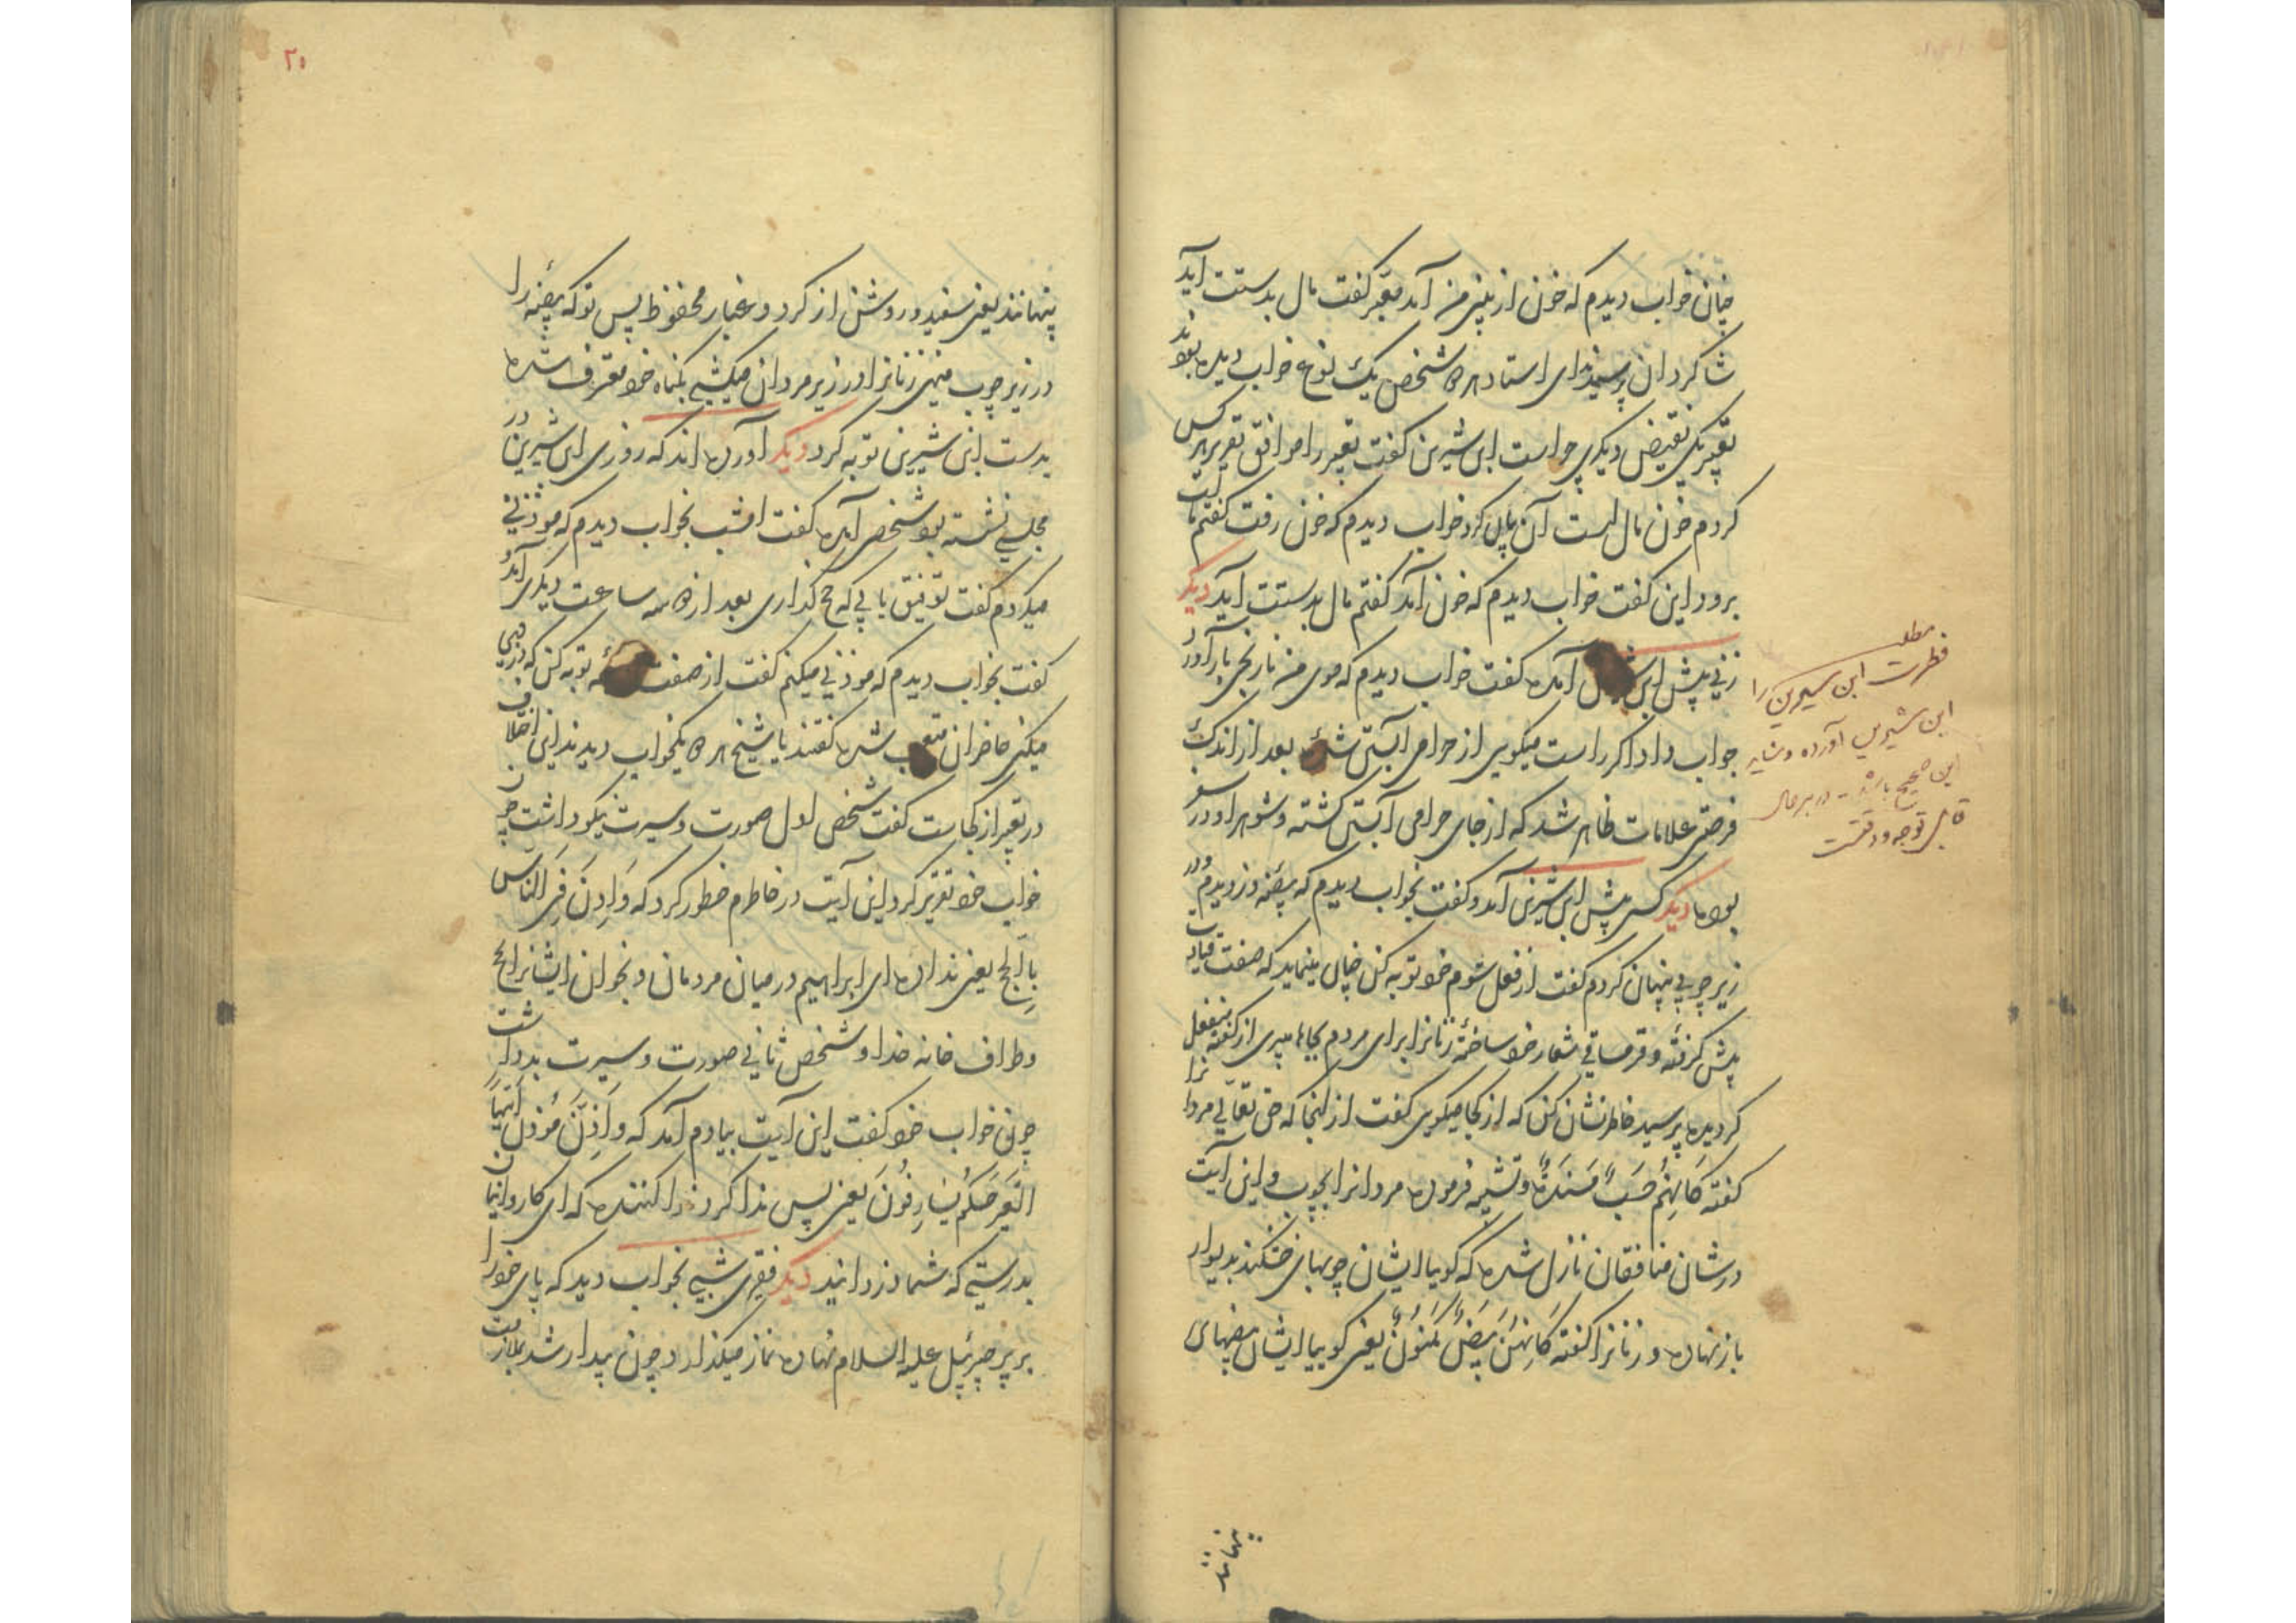 چنان خواب دیدم که خون از بینی من آمد معبر گفت مال بدستت آید
شاکردان پرسیدند ای استاد هر دو شخص یک نوع خواب دیده بودند
تعبیر یکی نقیض دیگری چراست ابن شیرین گفت تعبیر را موافق تقریر هر کس
کردم خون مال است آن یکی کرد خواب دیدم که خون رفت گفتم مالت
برود این گفت خواب دیدم که خون آمد گفتم مال بدستت آید دیگر
زنی پیش ابن آمده گفت خواب دیدم که موی من نارنجی بار آورد
جواب داد اگر راست میگویی از حرامی آبستن شده بعد از اندک
فرصتی علامات ظاهر شد که از جای حرامی آبستن گشته و شوهر او در سفر
بوده دیگر کسی پیش ابن شیرین آمد و گفت بخواب دیدم که بیضه دزدیدم و در
زیر چوبی پنهان کردم گفت از فعل شوم خود توبه کن چنان مینماید که صفت قیادت
پیش گرفته و قرمساقی شعار خود ساخته زنانرا برای مردم بجایها میبری از گفته منفعل
گردیده پرسید خاطر نشان کن که از کجا میگویی گفت از اینجا که حق تعالی مردانرا
گفته کَاَنهُم خشبٌ مُسَنَدةٌ و تشبیه فرموده مردانرا بچوب و این آیت
در شان منافقان نازل شده که گویا ایشان چوبهای خشکند بدیوار
باز نهاده و زنانرا گفته کَاَنهُنَ بیضٌ مَکنُونٌ یعنی گوییا ایشان بیضهای
پنهانند
مطلب
فطرت ابن سیرین را
ابن شیرین آورده و شاید
این صحیح باشد - در هر حال
قابل توجه و دقتست
۲۰
پنهانند یعنی سفید و روشن از گرد و غبار محفوظ پس تو که بیضه را
در زیر چوب مینهی زنانرا در زیر مردان میکشی بگناه خود معترف شده
بدست ابن شیرین توبه کرد دیگر آورده اند که روزی ابن شیرین در
مجلسی نشسته بود شخصی آمده گفت امشب بخواب دیدم که موذنی
میکردم گفت توفیق یابی که حج گذاری بعد از دو سه ساعت دیگری آمد
گفت بخواب دیدم که موذنی میکنم گفت از صفت توبه کن که دزدی
میکنی حاضران متعجب شده گفتند یا شیخ هر دو یکخواب دیدند این اختلاف
در تعبیر از کجاست گفت شخص اول صورت و سیرت نیکو داشت چون
خواب خود تقریر کرد این آیت در خاطرم خطور کرد که وَاَذِنَ فِی الناسِ
بِالحج یعنی ندا ده ای ابراهیم در میان مردمان و بخوان ایشانرا بحج
و طواف خانه خدا و شخص ثانی صورت و سیرت بد داشت
چون خواب خود گفت این آیت بیادم آمد که وَ اَذَنَ مُؤذنٌ اَیَتُهَا
العِیرُ اِنَّکُم لَسارِقُونَ یعنی پس ندا کرد ندا کننده که ای کاروانیان
بدرستی که شما دزدانید دیگر فقیری شبی بخواب دید که پای خود را
بر پر جبرئیل علیه السلام نهاده نماز میگذارد چون بیدار شد بملازمت